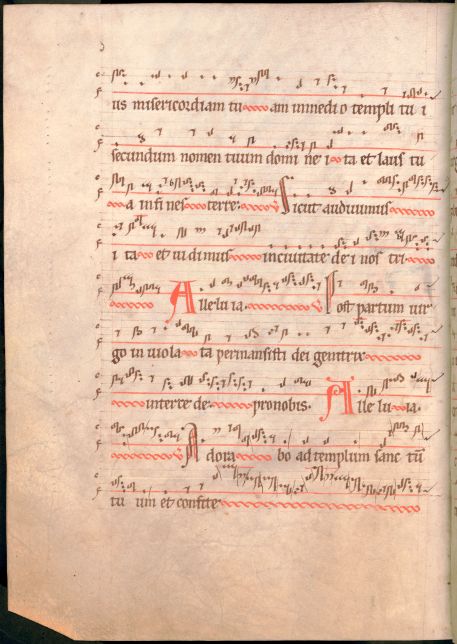 us misericordiam tu am in medi o templi tu i
secundum nomen tuum domi ne i ta et laus tu
a in fi nes terre. V Sicut audivimus
i ta et vidimus in civitate de i nos tri.
Alle lu ia. V Post partum vir
go in viola ta permansisti dei genitrix
interce de pro nobis. Alle lu ia.
V Adora bo ad templum sanc tū
tu um et confite